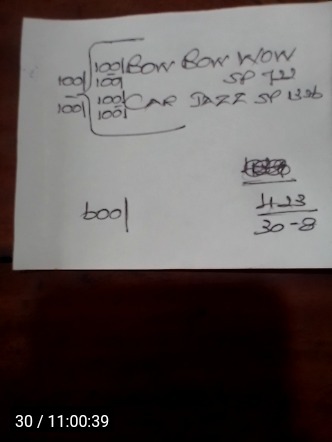 100| 100| BOW BOW WOW
100 SP 722
100| 100| CAR JAZZ SP 1326
100|
600|
423
30-8
30 / 11:00:39